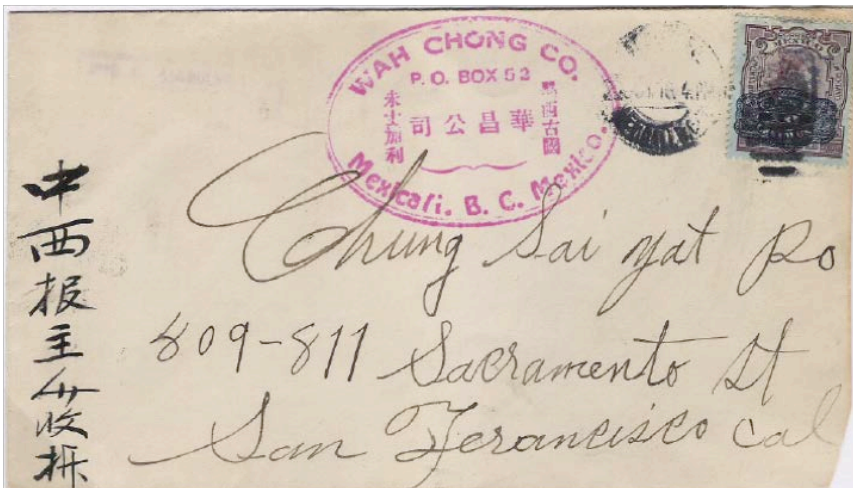 WAH CHONG CO.
P. O. BOX 52
西古國
華昌公司
未士加利
Mexicali. B. C. Mexico.
Chung Sai Yat Po
809-811 Sacramento St
San Ferancisco Cal
中西报主收拆